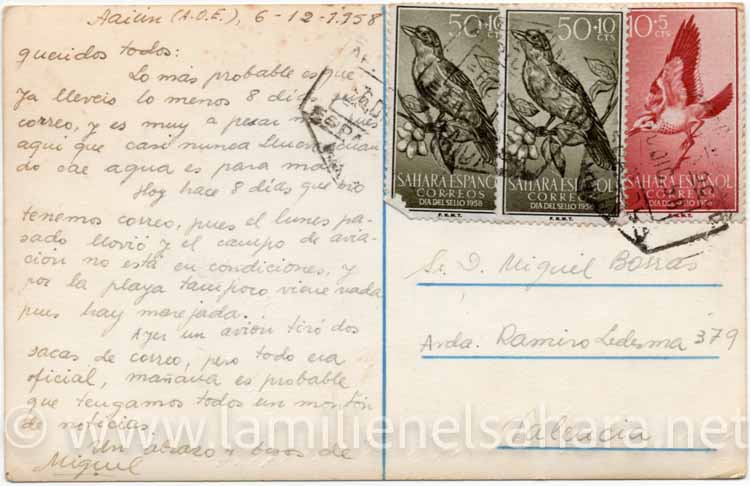 Aaiún (A.O.E.), 6-12-1.958
queridos todos:
Lo más probable es que
ya lleveis lo menos 8 días
correo, y es muy a pesar
aquí que casi nunca llueve cuan
do cae agua es para
Hoy hace 8 días que no
tenemos correo, pues el lunes pa-
sado llovió y el campo de avia-
ción no está en condiciones, y
por la playa tampoco viene nada
pues hay marejada.
Ayer un avión tiró dos
sacas de correo, pero todo era
oficial, mañana es probable
que tengamos todos un montón
de noticias.
Un abrazo y besos de
Miguel
50+10
CTS
SAHARA ESPAÑOL
CORREOS
DIA DEL SELLO 1958
F.N.M.T.
50+10
CTS
SAHARA ESPAÑOL
CORREOS
DIA DEL SELLO 1958
F.N.M.T.
10+5
CTS
SAHARA ESPAÑOL
CORREOS
DIA DEL SELLO 1958
F.N.M.T.
Sr. D. Miguel Borrás
Avda. Ramiro Ledesma 379
Valencia
© www.lamilienelsahara.net